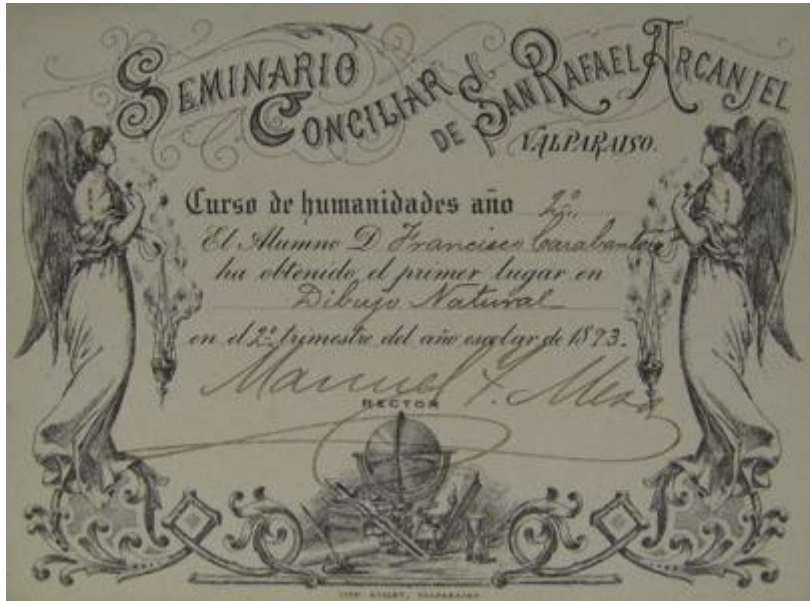 SEMINARIO
CONCILIAR DE SAN RAFAEL ARCANJEL
VALPARAISO.
Curso de humanidades año 2º
El Alumno D Francisco Carabantes
ha obtenido el primer lugar en
Dibujo Natural
en el 2º trimestre del año escolar de 1893.
Manuel T. Mesa
RECTOR
VALPARAISO